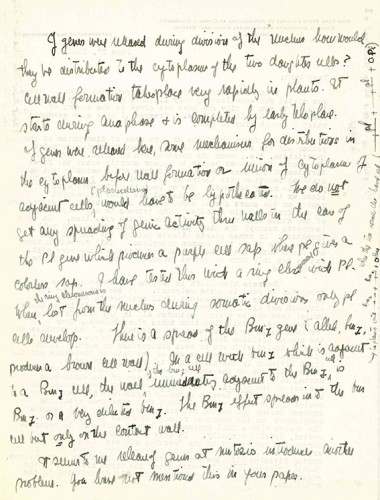 If genes were released during division of the nucleus how would
they be distributed to the cytoplasm of the two daughter cells?
Cell wall formation takes place very rapidly in plants. It
starts during anaphase & is complete by early telophase.
If genes were released here, some mechanisms for distributions in
the cytoplasm before wall formation or union of cytoplasm of
adjacent cells, (plasmodesma) would have to be hypothecated. We do not
get any spreading of genic activity thru walls in the case of
the Pl gene which produces a purple cell sap where pl gives a
colorless sap. I have tested this with a ring chrom. with Pl.
When, lost from the nucleus during somatic divisions only pl
cells develop. There is a spread of the Bm1 gene (allel, bm1,
produces a brown cell wall). In a cell with bm1 which is adjacent
to a Bm1 cell, the wall of the bm1 cell immediately adjacent to the Bm1 cell is
Bm1 or a very diluted bm1. The Bm1 effect spreads into the bm1
cell but only on the contact wall.
It seems to me release of genes at mitosis introduces another
problem. You have not mentioned this in your paper.